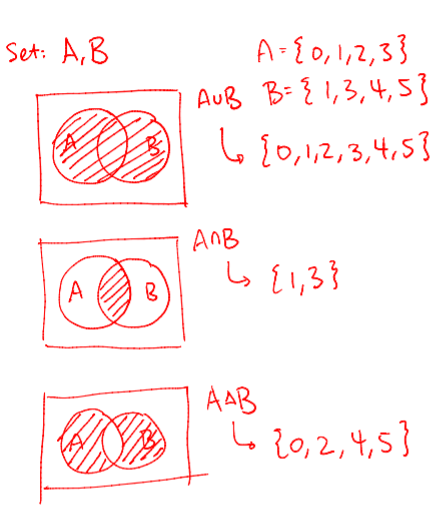 Set: A, B
A = {0, 1, 2, 3}
A∪B B = {1, 3, 4, 5}
A B
↳ {0, 1, 2, 3, 4, 5}
A∩B
A B
↳ {1, 3}
A∆B
A B
↳ {0, 2, 4, 5}